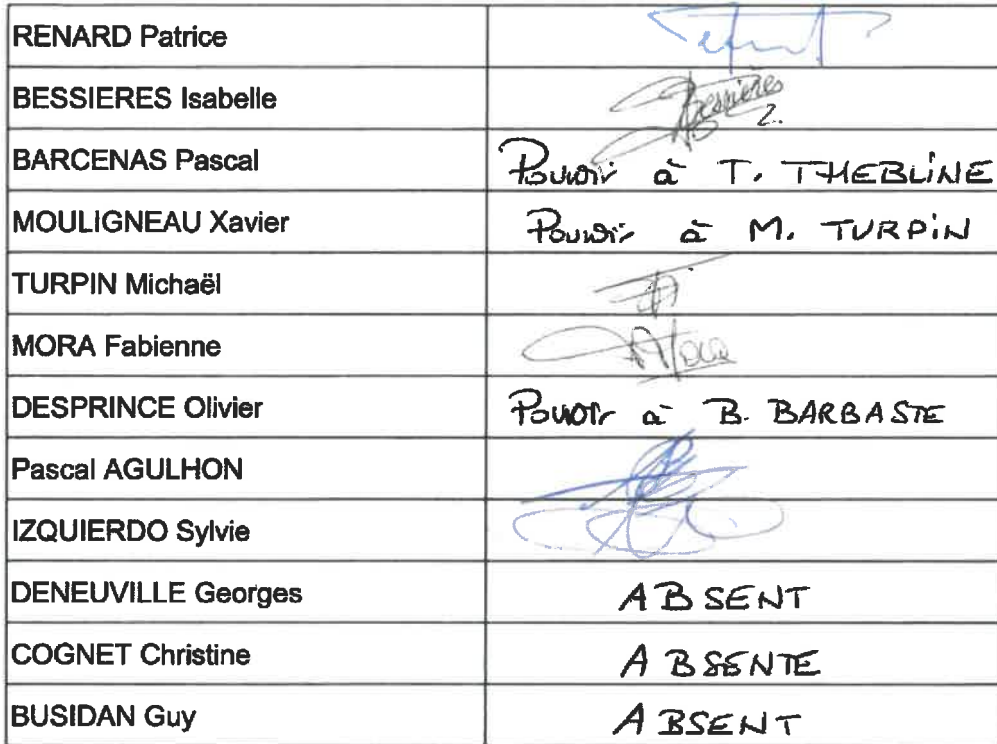 RENARD Patrice
BESSIERES Isabelle Bessières
BARCENAS Pascal Pouvoir à T. THEBLINE
MOULIGNEAU Xavier Pouvoir à M. TURPIN
TURPIN Michaël
MORA Fabienne Mora
DESPRINCE Olivier Pouvoir à B. BARBASTE
Pascal AGULHON
IZQUIERDO Sylvie
DENEUVILLE Georges ABSENT
COGNET Christine ABSENTE
BUSIDAN Guy ABSENT